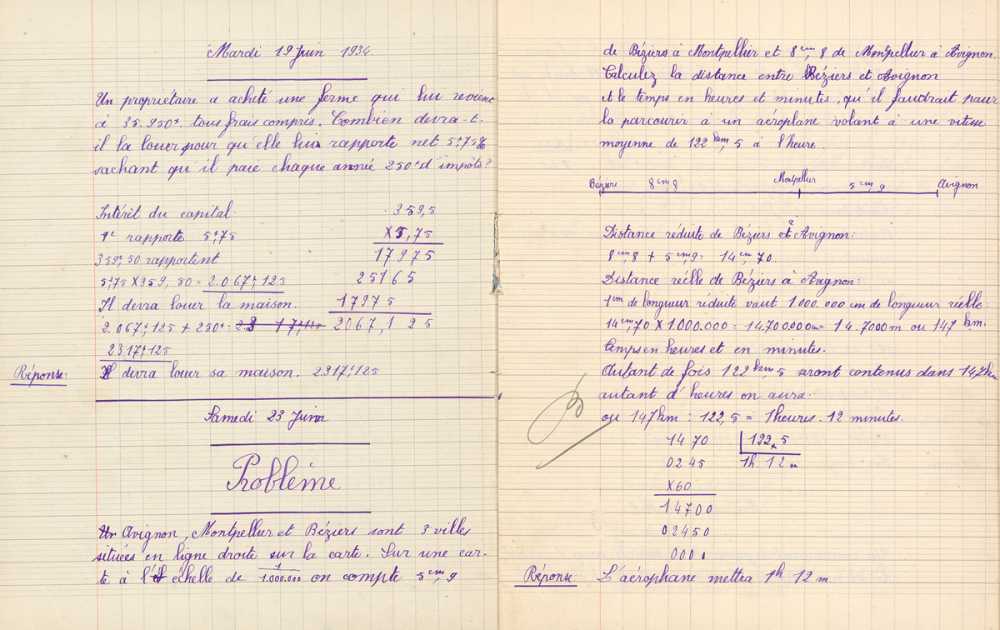 Mardi 19 Juin 1934
Un propriétaire a acheté une ferme qui lui revient
à 35.950f. tous frais compris. Combien devra-t-
il la louer pour qu'elle lui rapporte net 5f,75%
sachant qu'il paie chaque année 250f d'impôts?
Intérêt du capital:
1f rapporte 5f,75
359f,50 rapportent
5f,75 X 359,50 = 2.067f,125
Il devra louer la maison.
2.067f,125 + 250f =
2317f,125
359,5
X 5,75
17975
25165
17975
2067,125
Réponse: Il devra louer sa maison. 2317f,125
Samedi 23 Juin
Problème
Avignon, Montpellier et Béziers sont 3 villes
situées en ligne droite sur la carte. Sur une car-
te à l'échelle de 1/1.000.000 on compte 5cm,9
de Béziers à Montpellier et 8cm,8 de Montpellier à Avignon.
Calculez la distance entre Béziers et Avignon
et le temps en heures et minutes, qu'il faudrait pour
la parcourir à un aéroplane volant à une vitesse
moyenne de 122km,5 à l'heure.
Béziers 8cm,8 Montpellier 5cm,9 Avignon
Distance réduite de Béziers à Avignon:
8cm,8 + 5cm,9 = 14cm,70
Distance réelle de Béziers à Avignon:
1cm de longueur réduite vaut 1.000.000 cm de longueur réelle
14cm,70 X 1.000.000 = 14.700.000cm = 14.7000m ou 147 km.
Temps en heures et en minutes.
Autant de fois 122km,5 seront contenus dans 147km
autant d'heures on aura:
ou 147km : 122,5 = 1heures. 12 minutes.
1470 122,5
0245 1h 12m
X60
14700
02450
0000
Réponse: L'aéroplane mettra 1h 12m